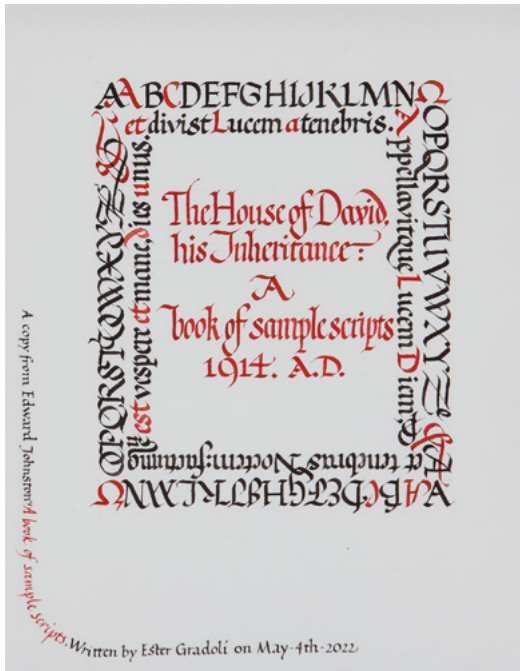 AABCDEFGHIJKLMN
OPQRSTUVWXYZ
et divisit Lucem a tenebris.
Appellavitque Lucem Diem
et tenebras Noctem: factumq
est vespere et mane, dies unus.
The House of David,
his Inheritance:
A
book of sample scripts
1914. A.D.
A copy from Edward Johnston's A book of sample scripts.
Written by Ester Gradolí on May-4th-2022